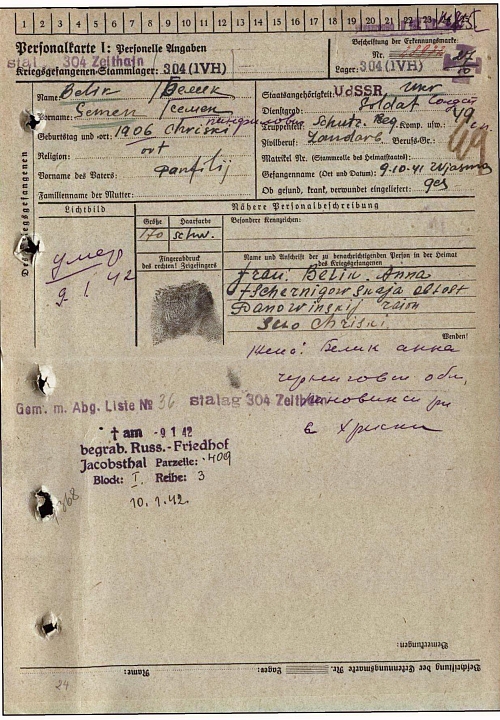 1 2 3 4 5 6 7 8 9 10 11 12 13 14 15 16 17 18 19 20 21 22 23 24 25
Personalkarte I: Personelle Angaben
stalag 304 Zeithain
Kriegsgefangenen-Stammlager: 304 (IVH)
Beschriftung der Erkennungsmarke:
Lager: 304 (IV H)
Des Kriegsgefangenen
Name: Belik / Белик
Vorname: Semen / Семен
Geburtstag und -ort: 1906 Chriski
Religion: ort
Vorname des Vaters: Panfilij
Familienname der Mutter:
Staatsangehörigkeit: UdSSR, Ukr
Dienstgrad: Soldat Солдат
Truppenteil: Schutz. Reg. Komp. usw.:
Zivilberuf: Landarb. Berufs-Gr.:
Matrikel Nr. (Stammrolle des Heimatstaates):
Gefangennahme (Ort und Datum): 9.10.41 Wjasma
Ob gesund, krank, verwundet eingeliefert: ges
Lichtbild
Nähere Personalbeschreibung
Größe Haarfarbe Besondere Kennzeichen:
170 schw.
Fingerabdruck des rechten! Zeigefingers
Name und Anschrift der zu benachrichtigenden Person in der Heimat des Kriegsgefangenen
Frau: Belik Anna
Tschernigowskaja oblost
Panowinskij raion
Selo Chriski.
Wenden!
умер
9.1.42
Жена: Белик Анна
Gem. m. Abg. Liste № 36 stalag 304 Zeithain
† am - 9. 1. 42
begrab. Russ.-Friedhof
Jacobsthal Parzelle: 409
Block: I. Reihe: 3
10.1.42.
Bemerkungen:
Beschriftung der Erkennungsmarke Nr. Lager: Name:
24